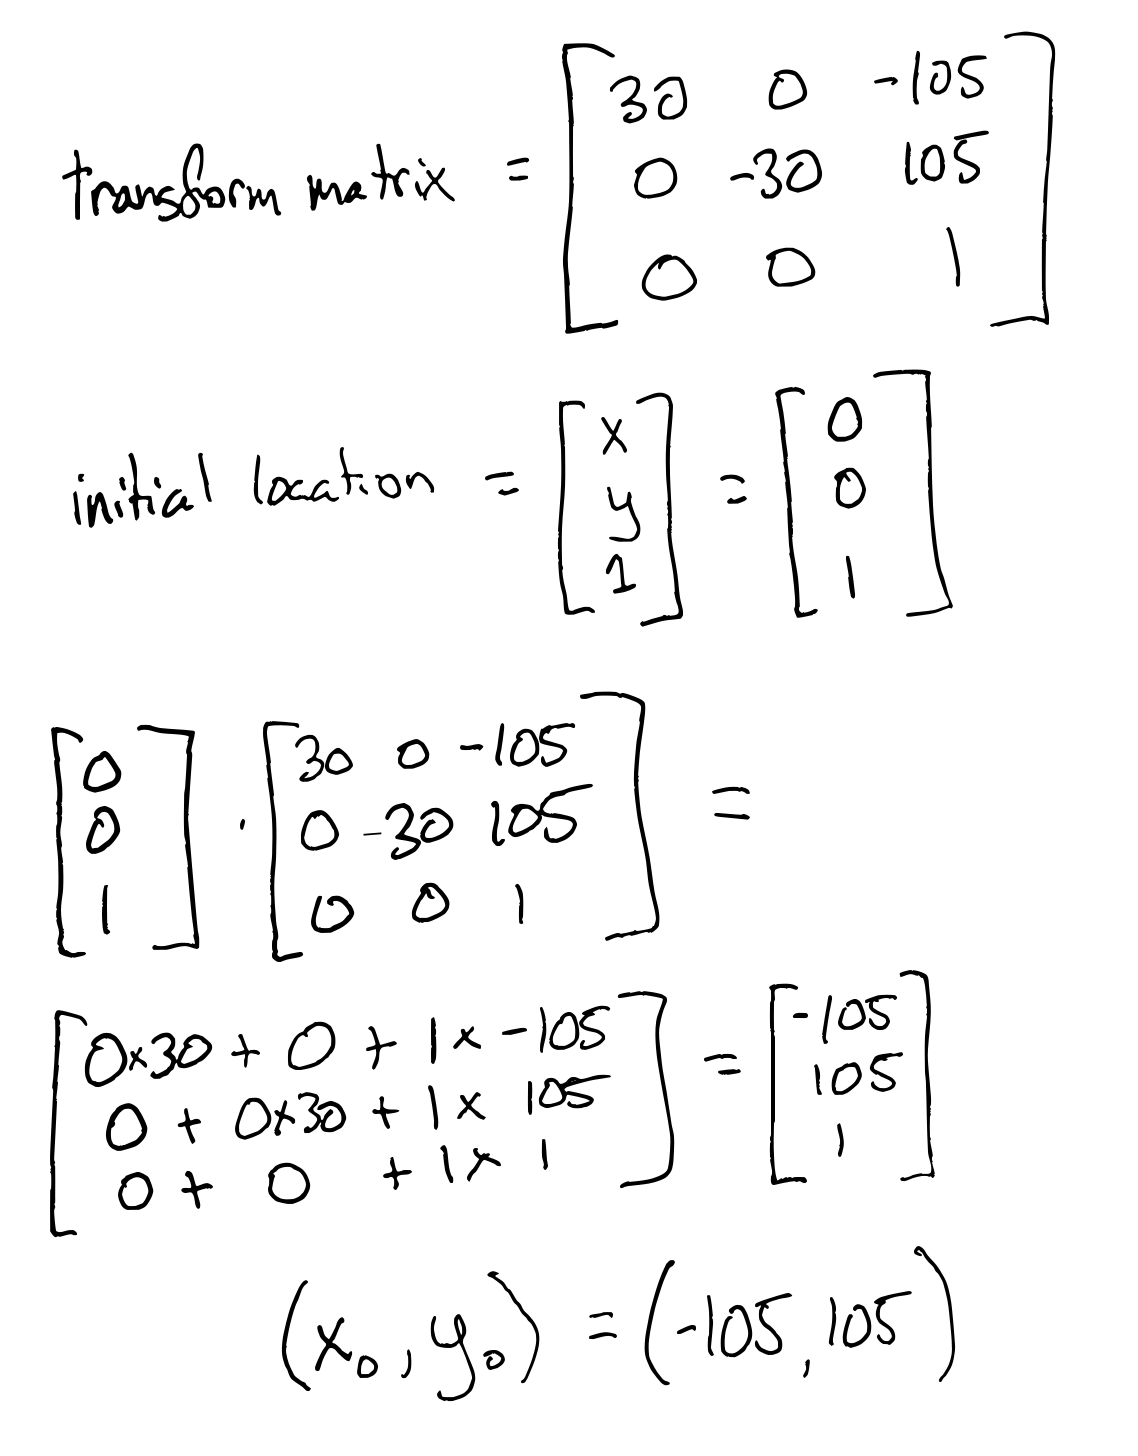 transform matrix = [30 0 -105
0 -30 105
0 0 1]
initial location = [x
y
1] = [0
0
1]
[0
0
1] · [30 0 -105
0 -30 105
0 0 1] =
[0x30 + 0 + 1 x -105
0 + 0x30 + 1 x 105
0 + 0 + 1x 1] = [-105
105
1]
(x₀, y₀) = (-105, 105)